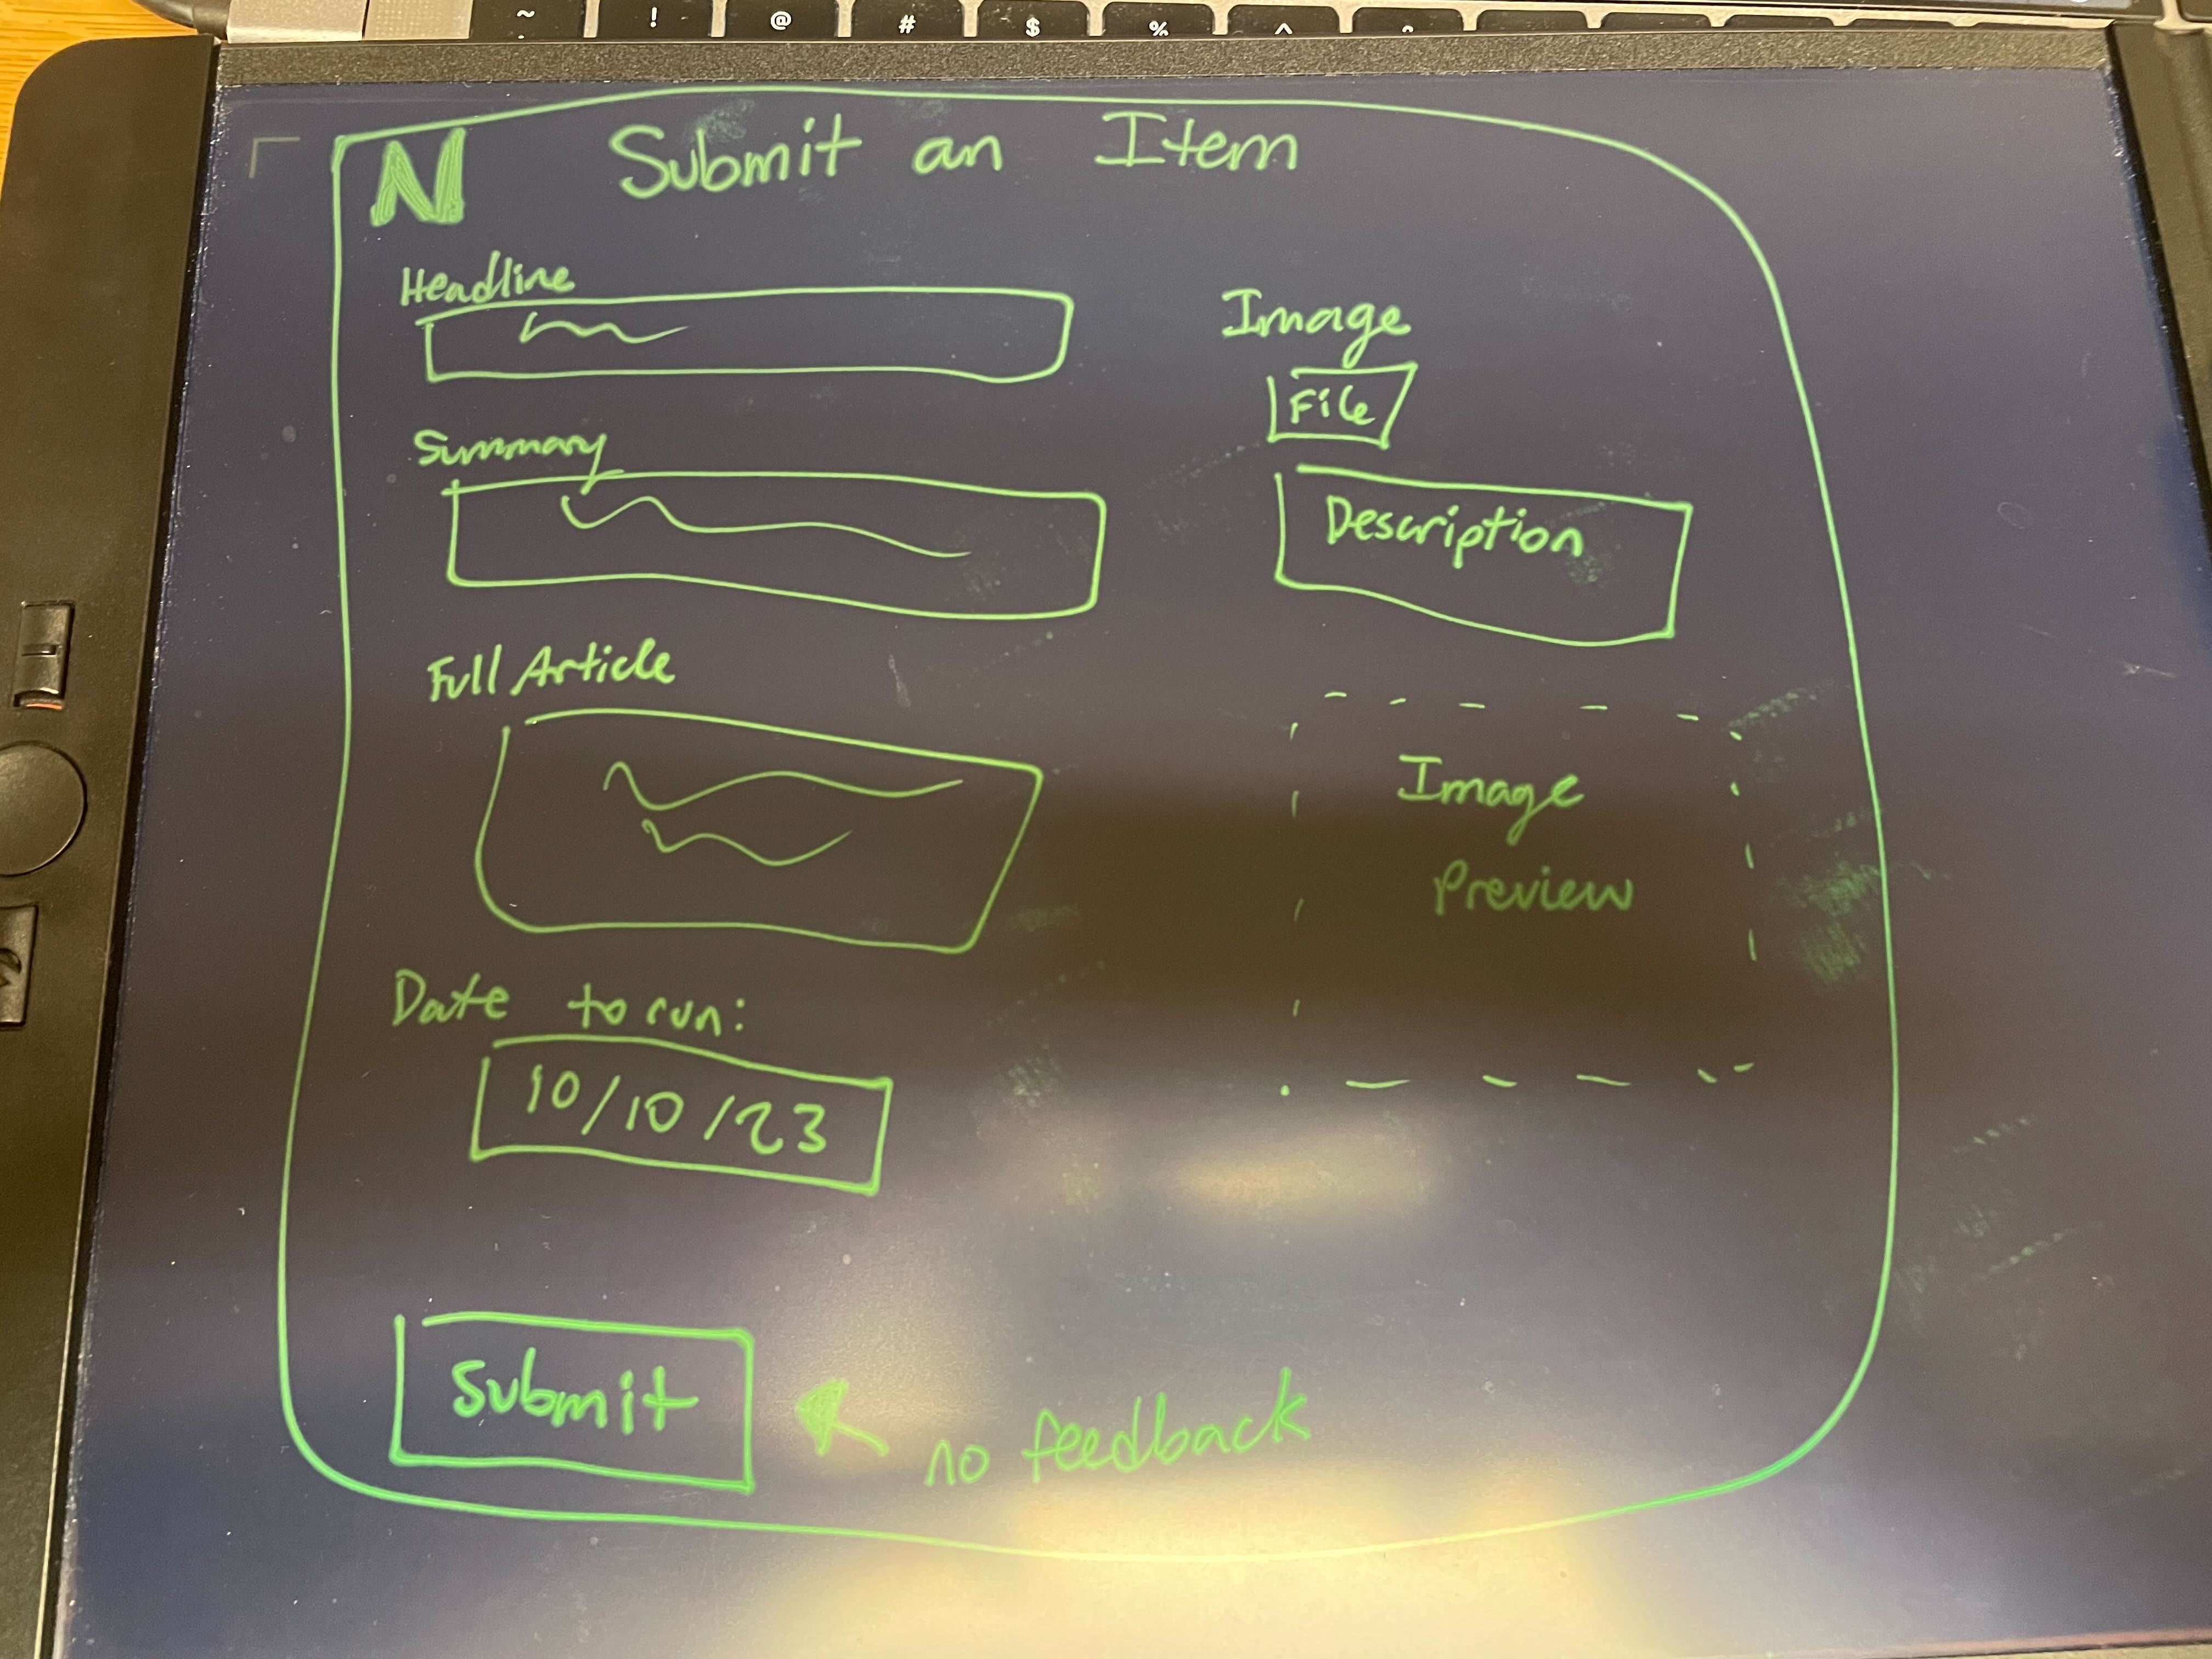 ~ ! @ # $ % ^
N Submit an Item
Headline
Summary
Full Article
Date to run:
10/10/23
Submit
no feedback
Image
File
Description
Image
Preview